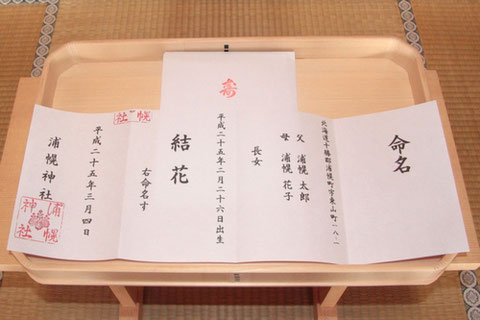 命名
北海道十勝郡浦幌町字東山町一八ー一
父 浦幌 太郎
母 浦幌 花子
長女
寿
平成二十五年二月二十六日出生
結花
右命名す
平成二十五年三月四日
浦幌神社
浦幌
神社